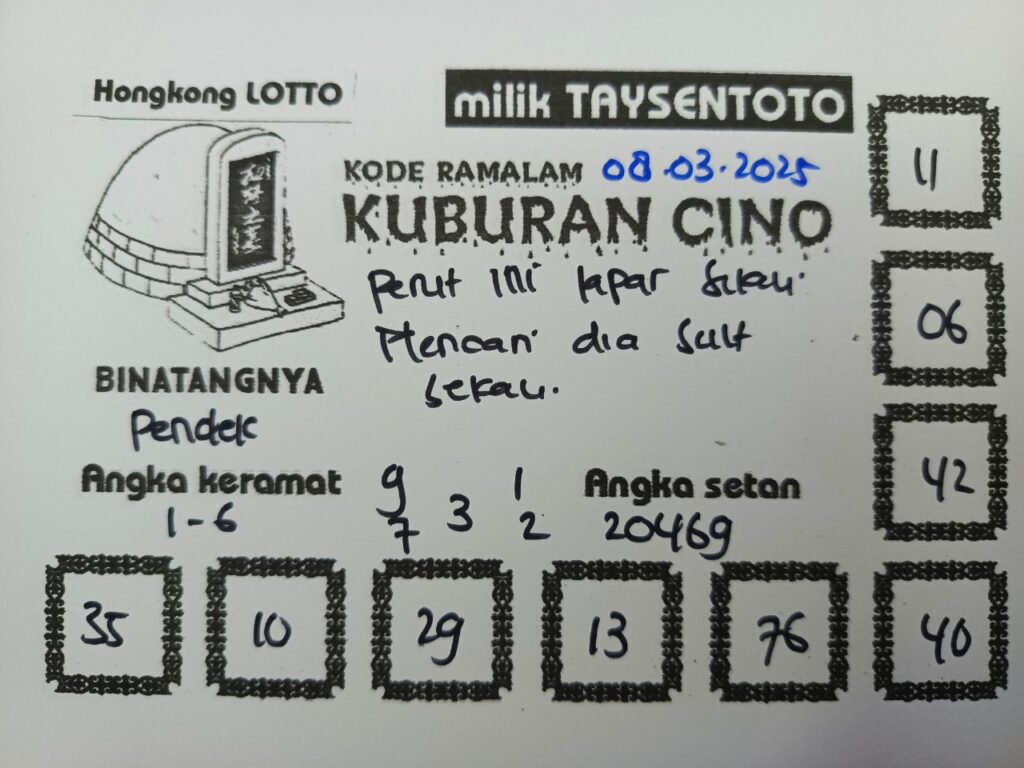 Hongkong LOTTO
milik TAYSENTOTO
KODE RAMALAM 08.03.2025
KUBURAN CINO
Perut ini lapar
Mencari dia sulit
sekali.
BINATANGNYA
Pendek
Angka keramat
1-6
9 1
7 3 2
Angka setan
20469
11
06
42
35 10 29 13 76 40